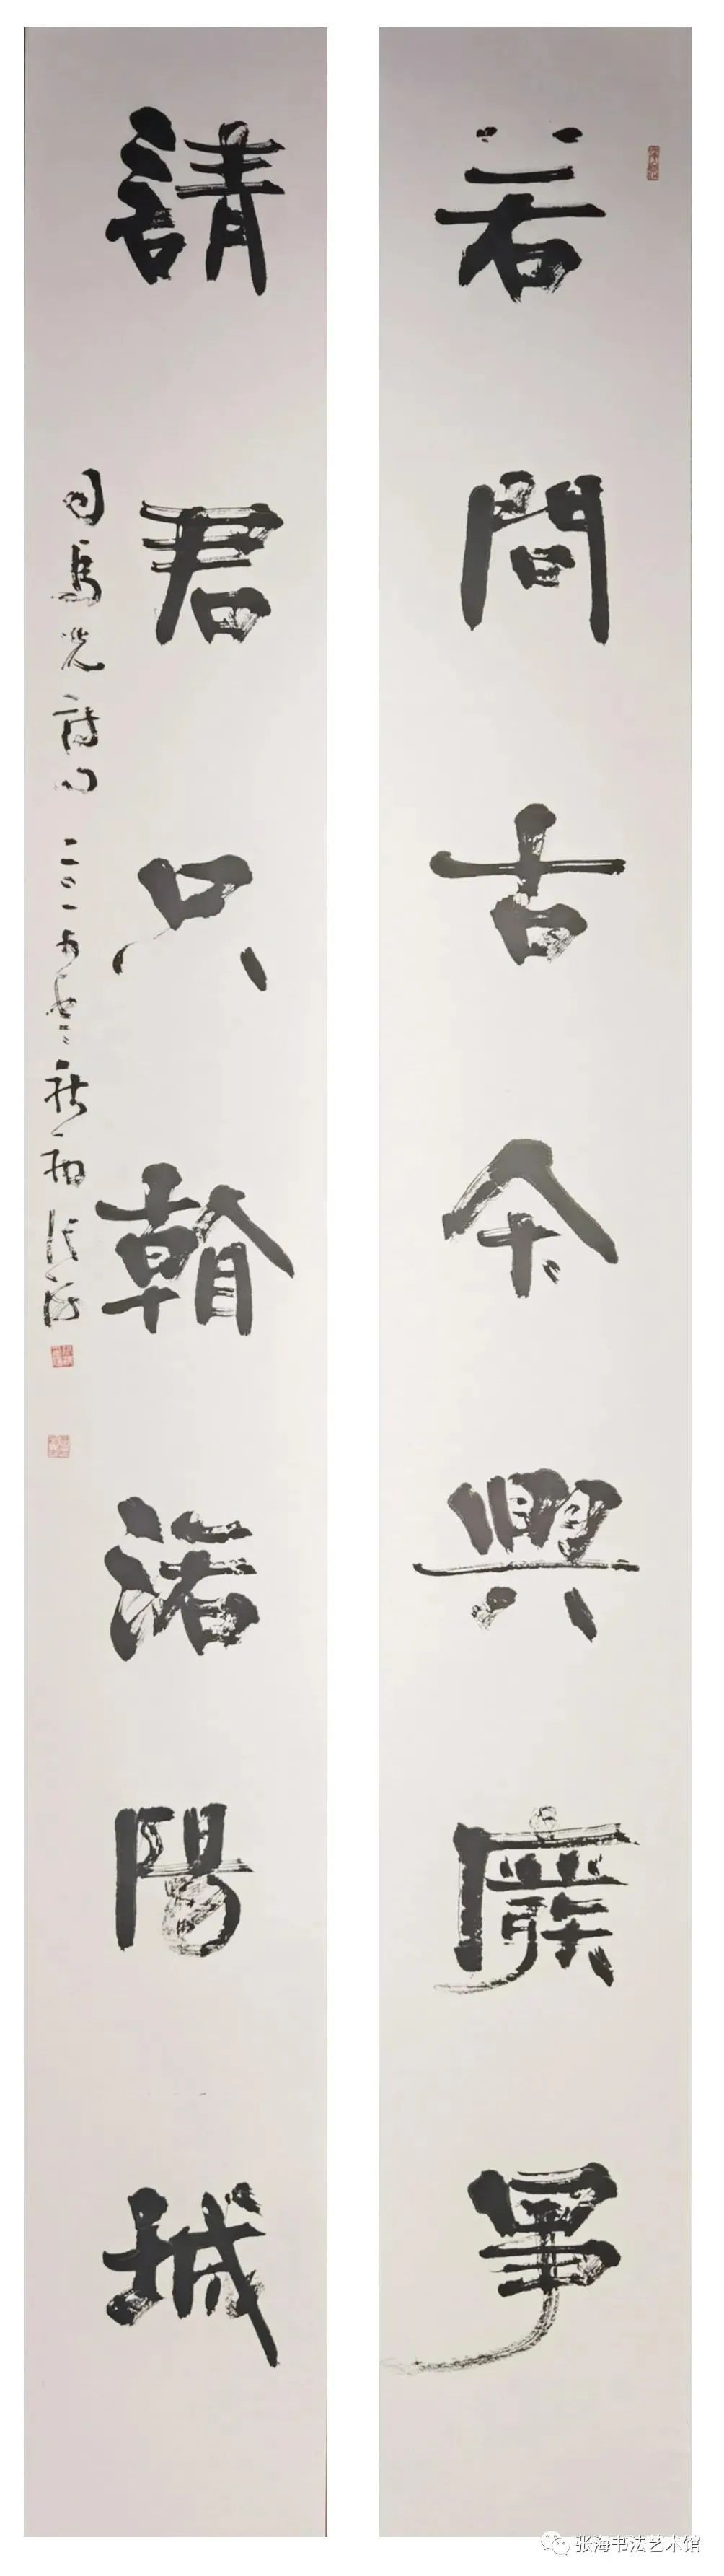 若問古今興廢事
請君只看洛陽城
司馬光詩句 二〇一 秋 張海
张海书法艺术馆